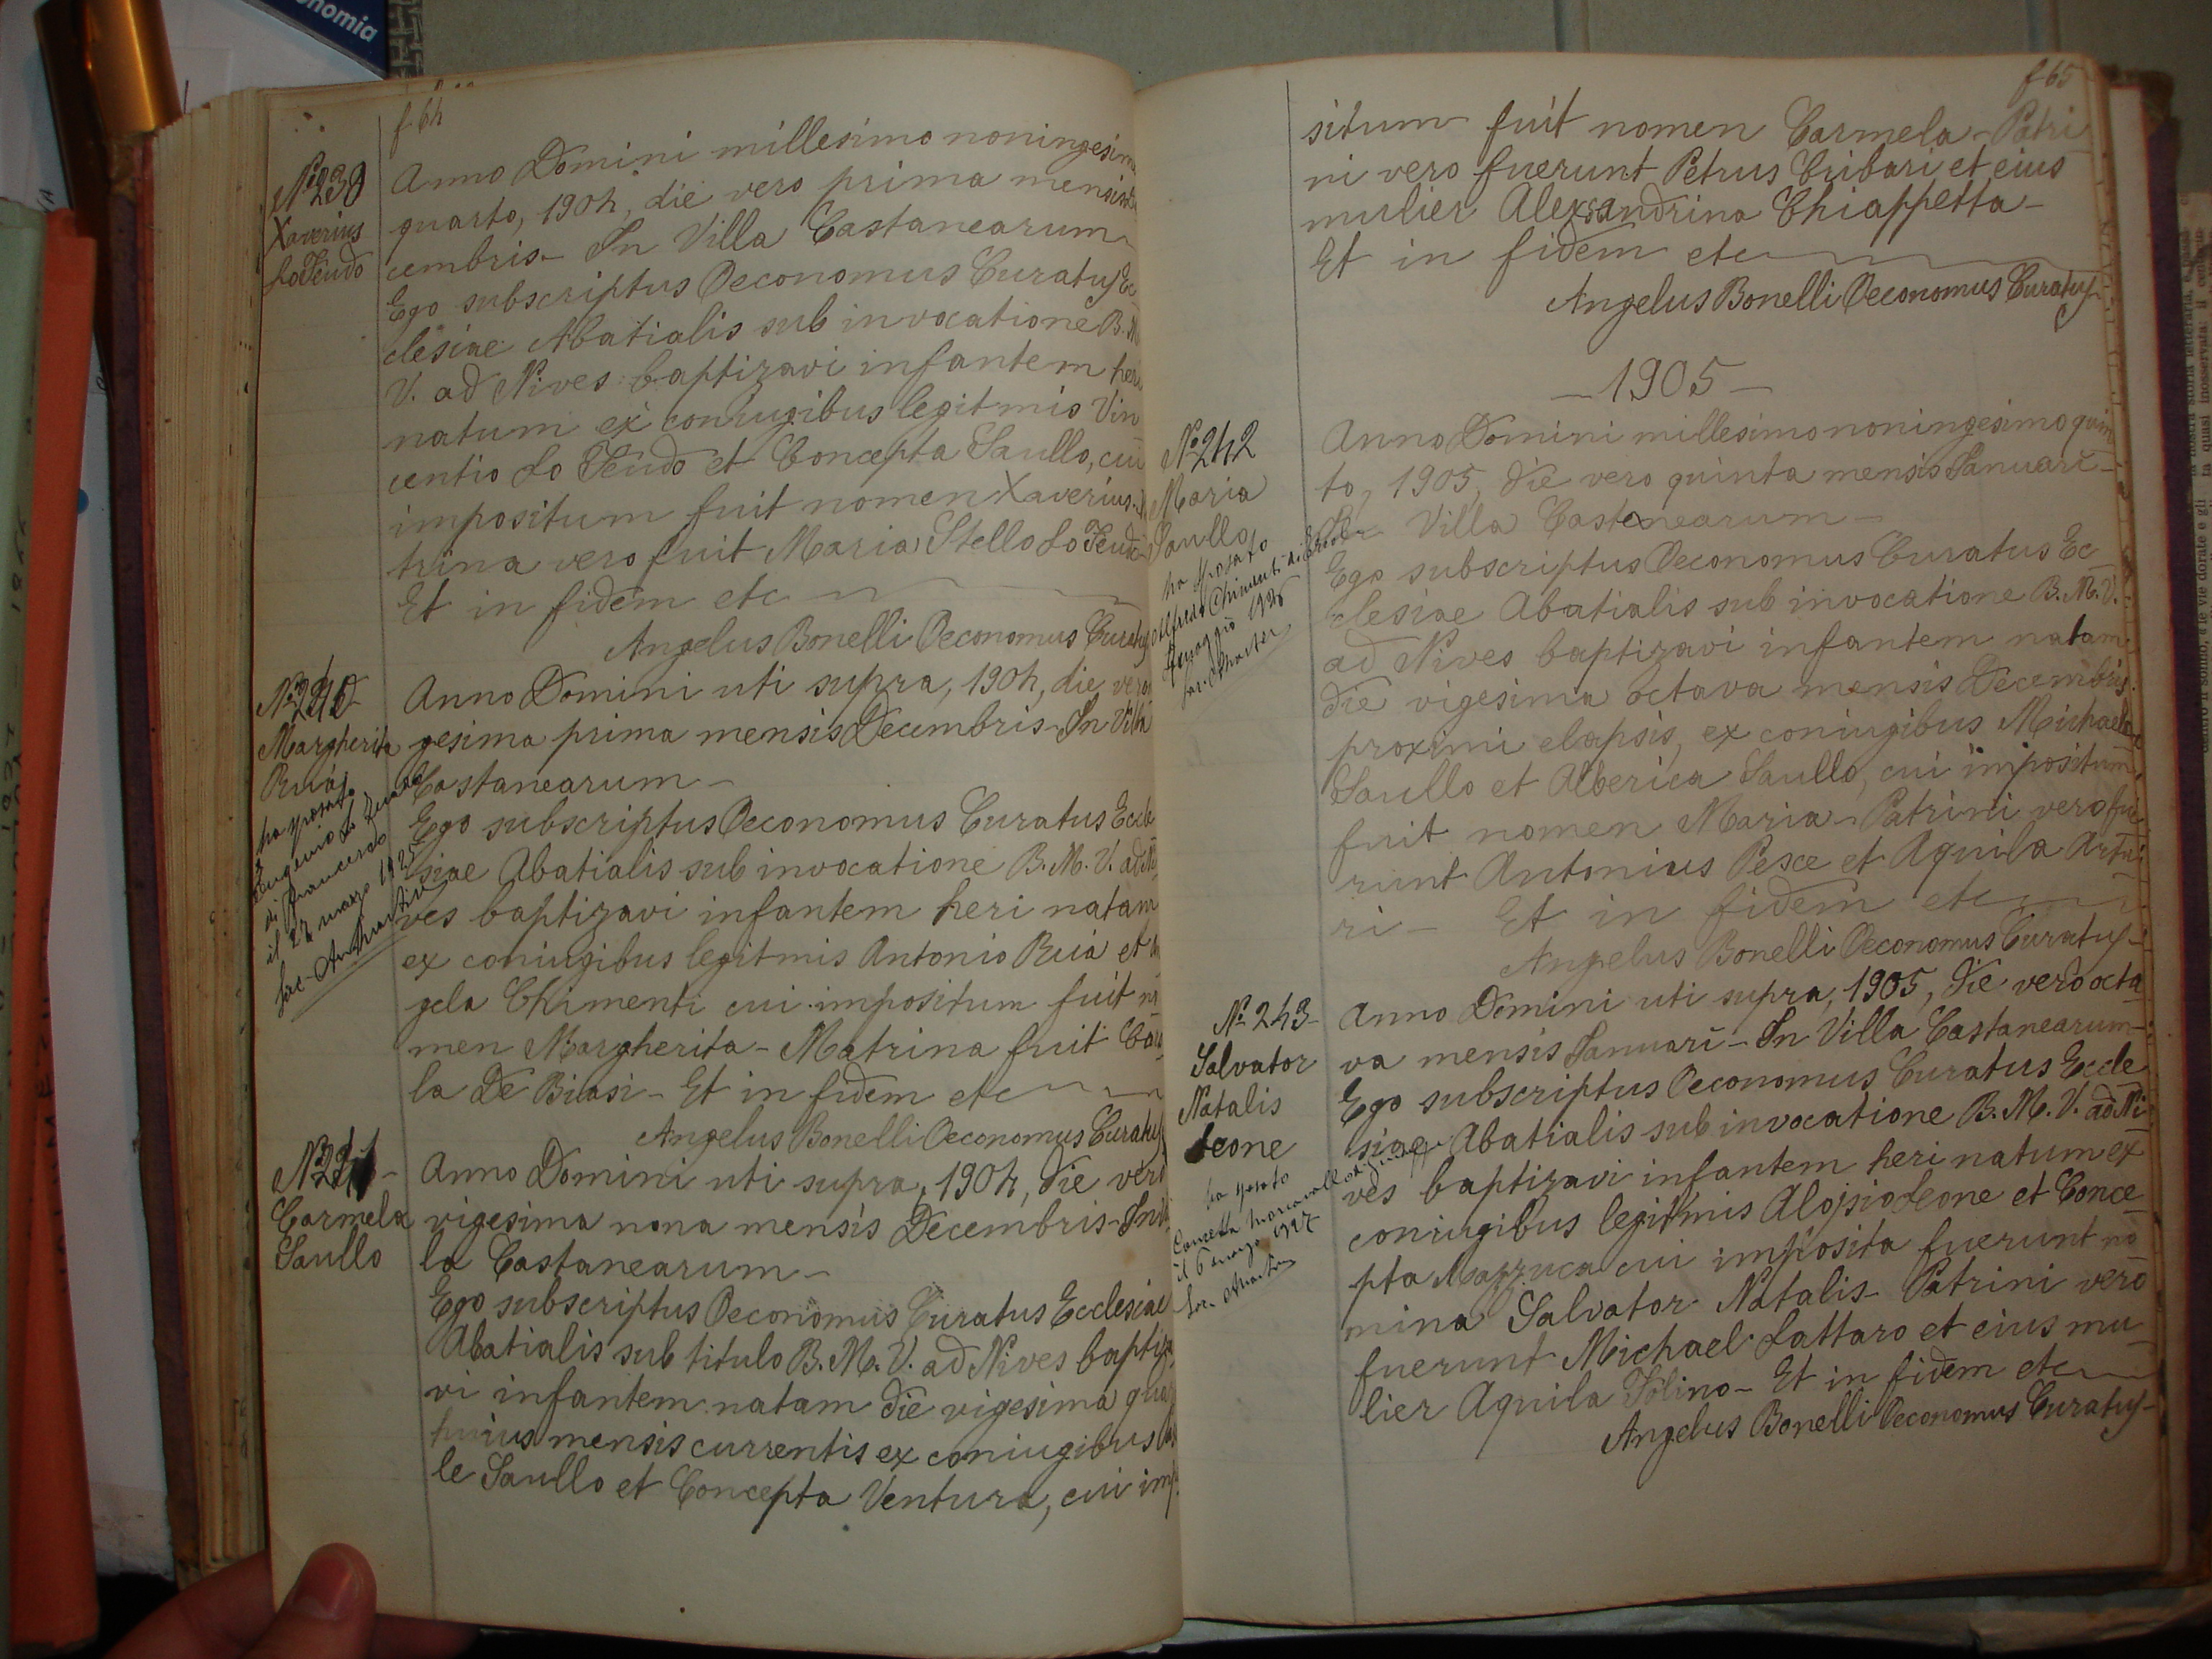 onomia
f 64
Nº 239
Xaverius
Lo Feudo
Anno Domini millesimo noningesim
quarto, 1904, die vero prima mensis
cembris - In Villa Castanearum
Ego subscriptus Oeconomus Curatus Ec
clesiae Abatialis sub invocatione B. M
V. ad Nives baptizavi infantem heri
natum ex coniugibus legitmis Vin
centio Lo Feudo et Concepta Saullo, cui
impositum fuit nomen Xaverius.
trina vero fuit Maria Stello Lo Feudo
Et in fidem etc
Angelus Bonelli Oeconomus Curatus
Nº 240
Margherita
Ruà
ha sposato
Eugenio Lo Feudo
di Francesco
il 22 marzo 1925
Anno Domini uti supra, 1904, die vero
gesima prima mensis Decembris - In Villa
Castanearum -
Ego subscriptus Oeconomus Curatus Eccle
siae Abatialis sub invocatione B. M. V. ad Ni
ves baptizavi infantem heri natam
ex coniugibus legitmis Antonio Ruà et
gela Chimenti cui impositum fuit no
men Margherita - Matrina fuit
la De Biasi - Et in fidem etc
Angelus Bonelli Oeconomus Curatus
Carmela
Saullo
Anno Domini uti supra, 1904, die vero
vigesima nona mensis Decembris - In
la Castanearum -
Ego subscriptus Oeconomus Curatus Ecclesiae
Abatialis sub titulo B. M. V. ad Nives baptiza
vi infantem natam die vigesima
huius mensis currentis ex coniugibus
le Saullo et Concepta Ventura, cui imp
f 65
situm fuit nomen Carmela - Patri
ni vero fuerunt Petrus Cribari et eius
mulier Alexsandrina Chiappetta -
Et in fidem etc
Angelus Bonelli Oeconomus Curatus
- 1905 -
Nº 242
Maria
Saullo
ha sposato
Alfredo Chimenti
maggio 1926
Anno Domini millesimo noningesimo quin
to, 1905, die vero quinta mensis Januari -
In Villa Castanearum -
Ego subscriptus Oeconomus Curatus Ec
clesiae Abatialis sub invocatione B. M. V.
ad Nives baptizavi infantem natam
die vigesima octava mensis Decembris
proximi elapsis, ex coniugibus Michaele
Saullo et Alberica Saullo, cui impositum
fuit nomen Maria - Patrini vero fue
runt Antonius Pesce et Aquila Artu
ri - Et in fidem etc
Angelus Bonelli Oeconomus Curatus -
Nº 243 -
Salvator
Natalis
Leone
ha sposato
il 6 marzo 1927
Anno Domini uti supra, 1905, die vero octa
va mensis Januari - In Villa Castanearum -
Ego subscriptus Oeconomus Curatus Eccle
siae Abatialis sub invocatione B. M. V. ad Ni
ves baptizavi infantem heri natum ex
coniugibus legitmis Alojsio Leone et Conce
pta Mazzuca cui imposita fuerunt no
mina Salvator Natalis - Patrini vero
fuerunt Michael Lattaro et eius mu
lier Aquila Tolino - Et in fidem etc
Angelus Bonelli Oeconomus Curatus -